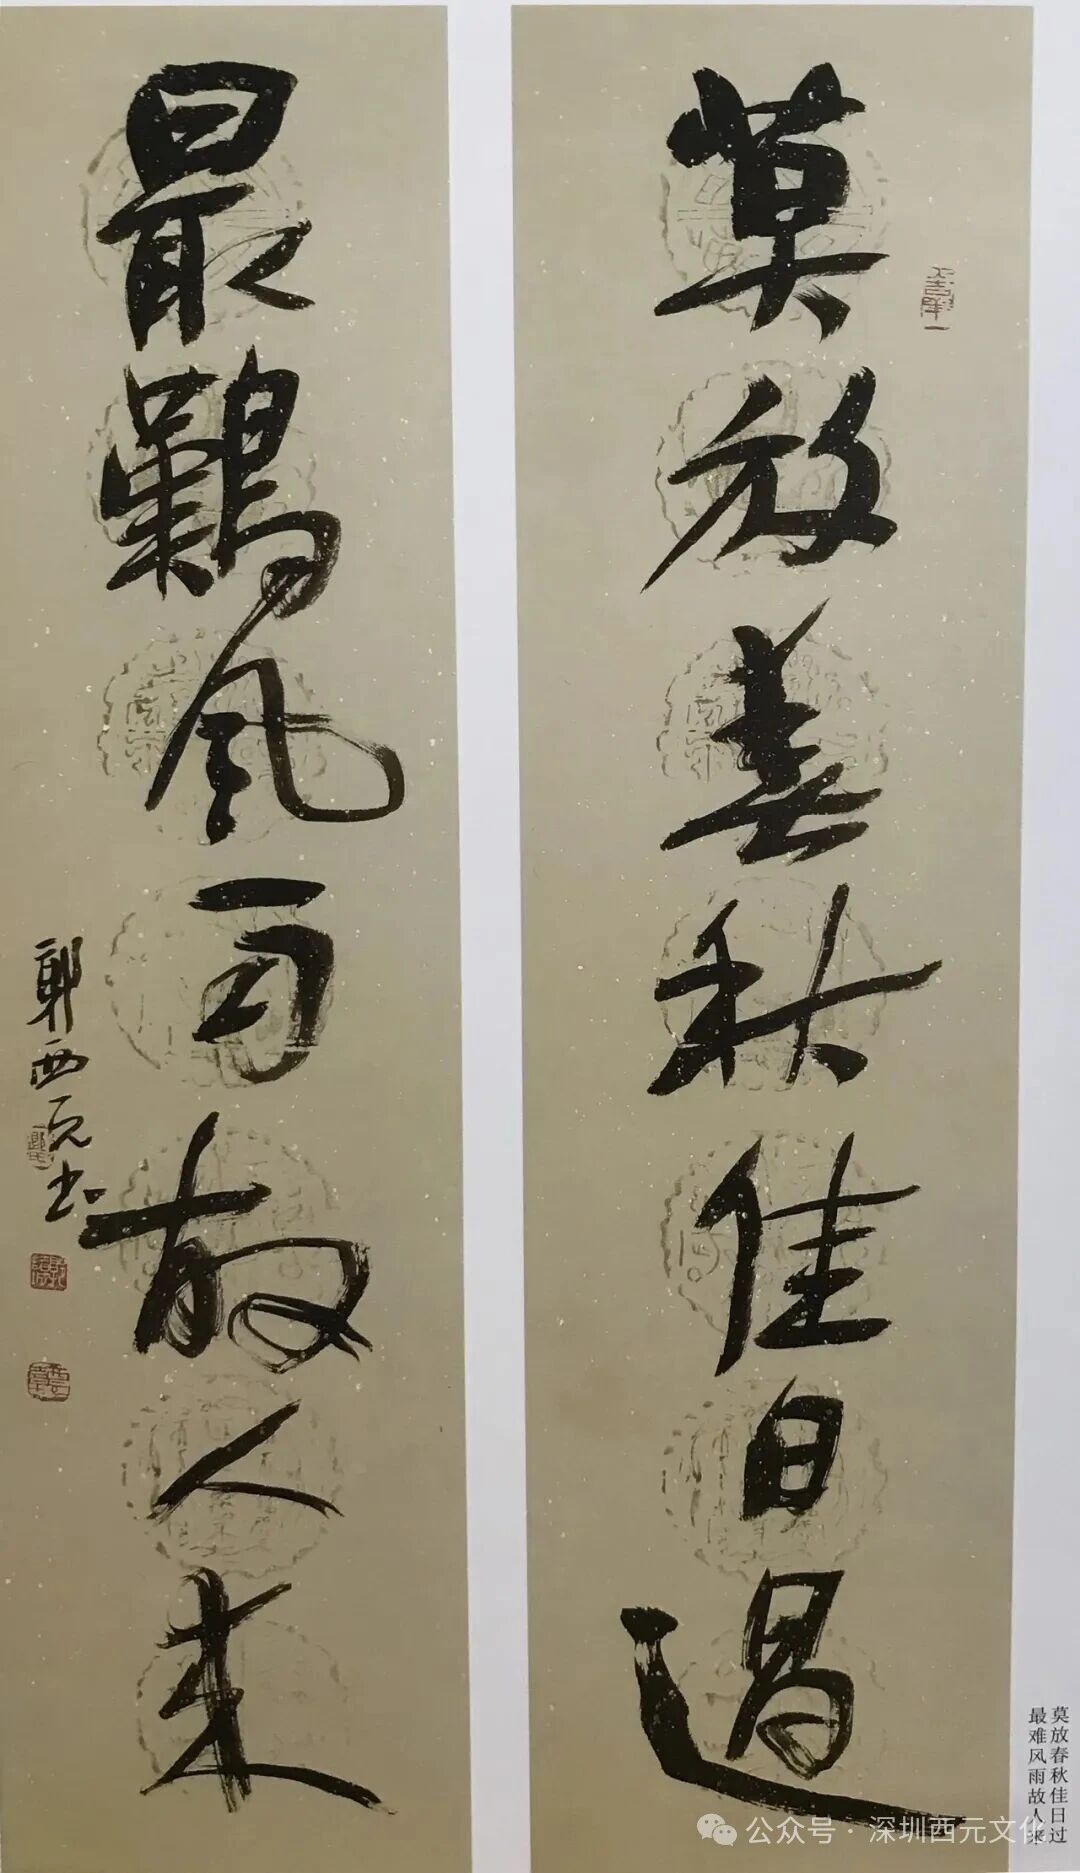 莫放春秋佳日過
最難風雨故人来
郭西元书
莫放春秋佳日过
最难风雨故人来
公众号·深圳西元文化